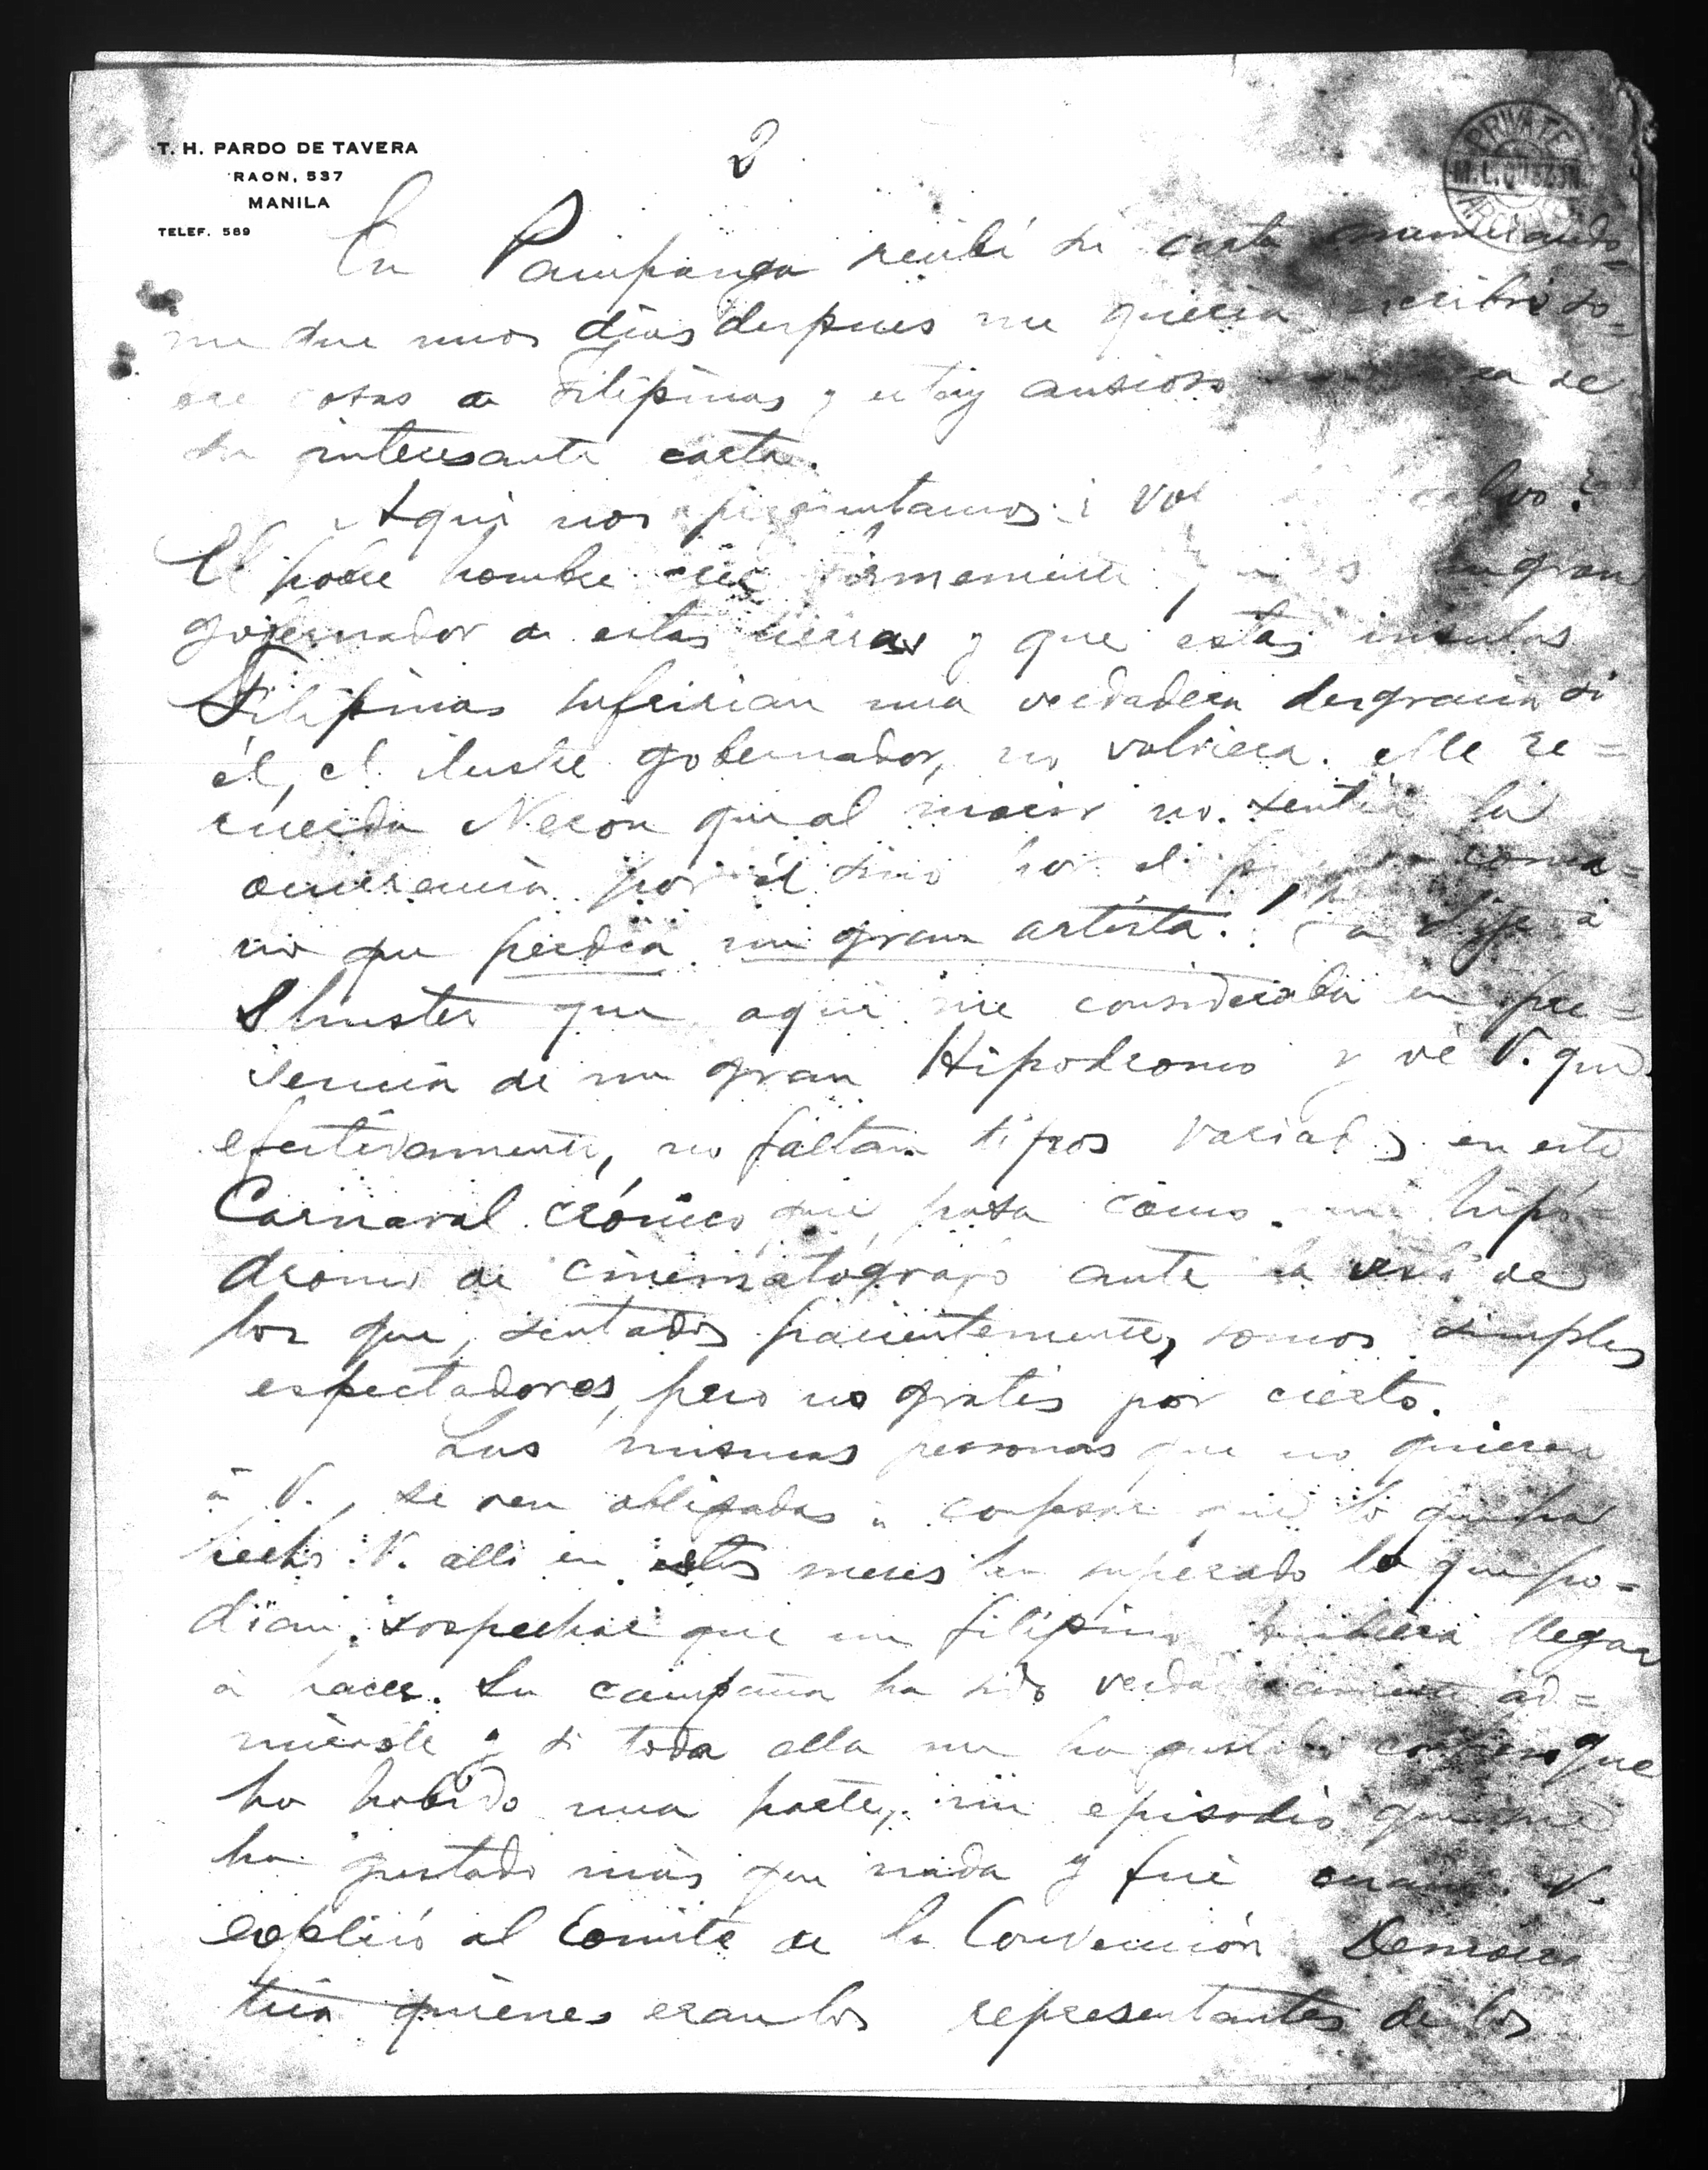 T. H. PARDO DE TAVERA
RAON, 537
MANILA
TELEF. 589
2
PRIVATE
M. L. QUEZON
En Pampanga recibí su carta anunciando-
me que unos días despues me queria escribir so-
bre cosas de Filipinas y estoy ansioso de
su interesante carta.
Aqui nos preguntamos ¿
El pobre hombre cree firmemente un gran
gobernador de estas tierras y que estas insulas
Filipinas sufririan una verdadera desgracia si
él, el ilustre gobernador, no volviera. Me re=
cuerda Neron que al morir no sentia la
por él sino por el roma=
no que perdia un gran artista. Ya dije á
Shuster que aqui me consideraba en pre=
sencia de un gran Hipodromo y vé V. que
efectivamente, no faltan tipos variados en este
Carnaval crónico que pasa como un hipó-
dromo de cinematógrafo ante la vista de
los que, sentados pacientemente, somos simples
espectadores, pero no gratis por cierto.
Las mismas personas que no quieren
á V., se ven obligadas á confesar que lo que ha
hecho V. alli en estos meses ha superado lo que po-
dian sospechar que un filipino hubiera llegar
á hacer. Su campaña ha sido verdaderamente ad=
mirable y si toda ella me ha gustado confieso que
ha habido una parte, un episodio que me
ha gustado más que nada y fué cuando V.
explicó al Comité de la Convención Democra-
tica quiénes eran los representantes de los